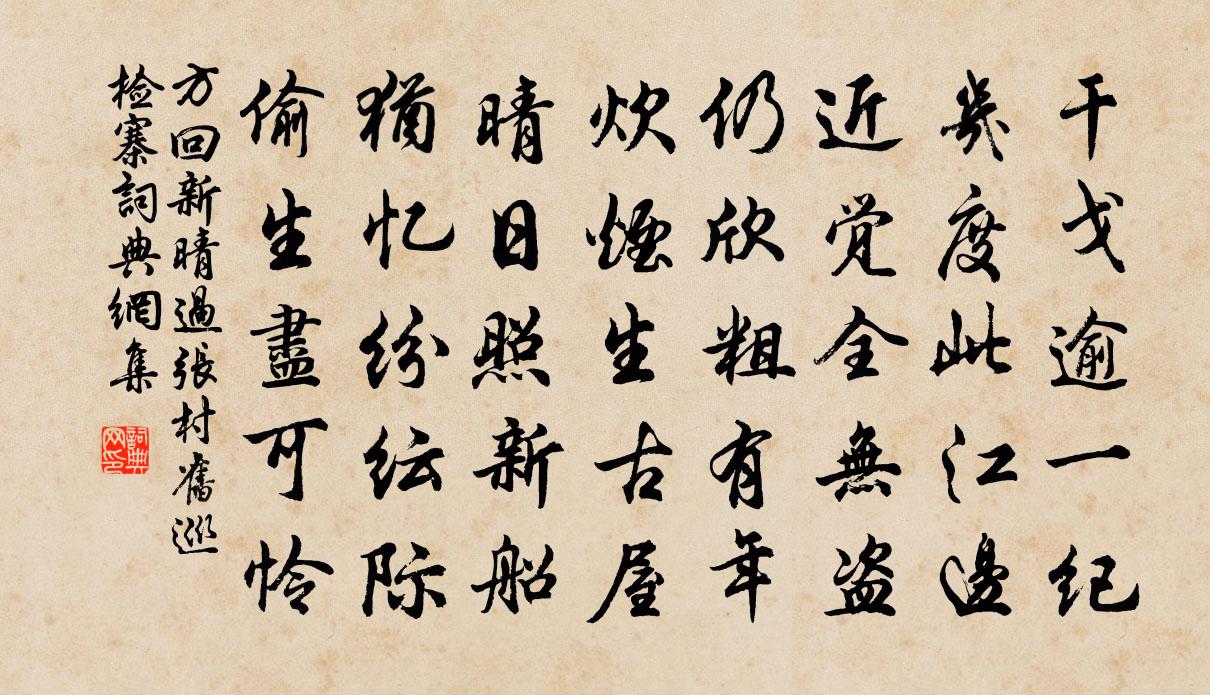 干戈逾一纪
几度此江邊
近觉全無盗
仍欣粗有年
炊煙生古屋
晴日照新船
犹忆纷纭际
偷生盡可怜
方回新晴過張村舊巡
检寨詞典網集
詞典网印